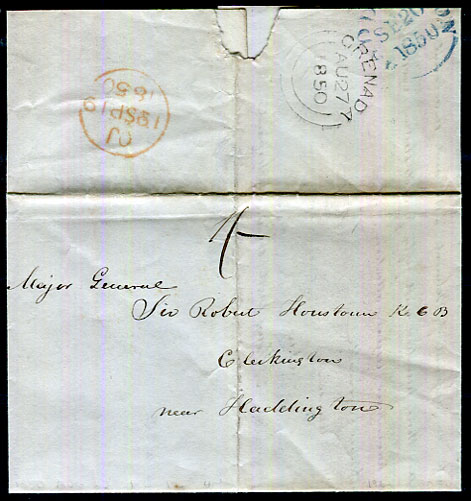 SE 20
1850
GRENADA
AU 27
1850
CJ
19 SP 19
1850
1/-
Major General
Sir Robert Houstoun K C B
Clerkington
near Haddington